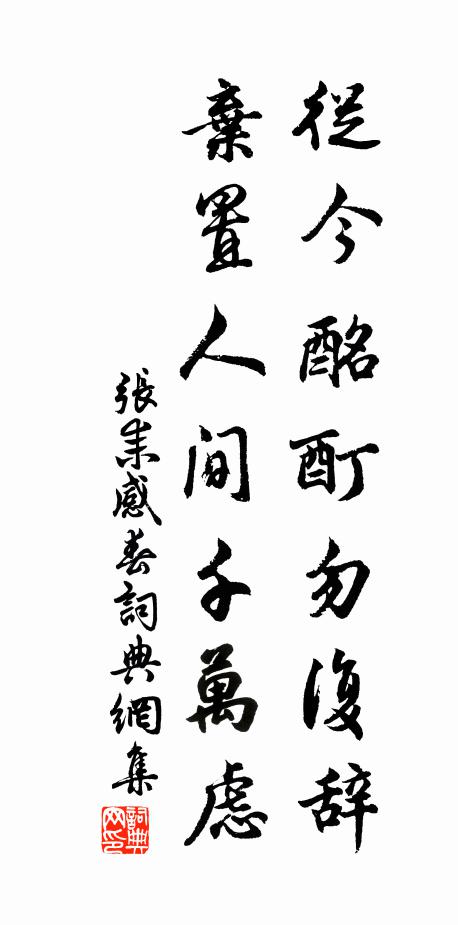 從今酩酊勿復辞
棄置人間千萬慮
張耒感春詞典網集
詞典网印